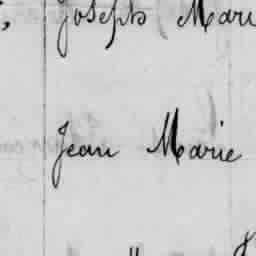 Joseph Mari
Jean Marie